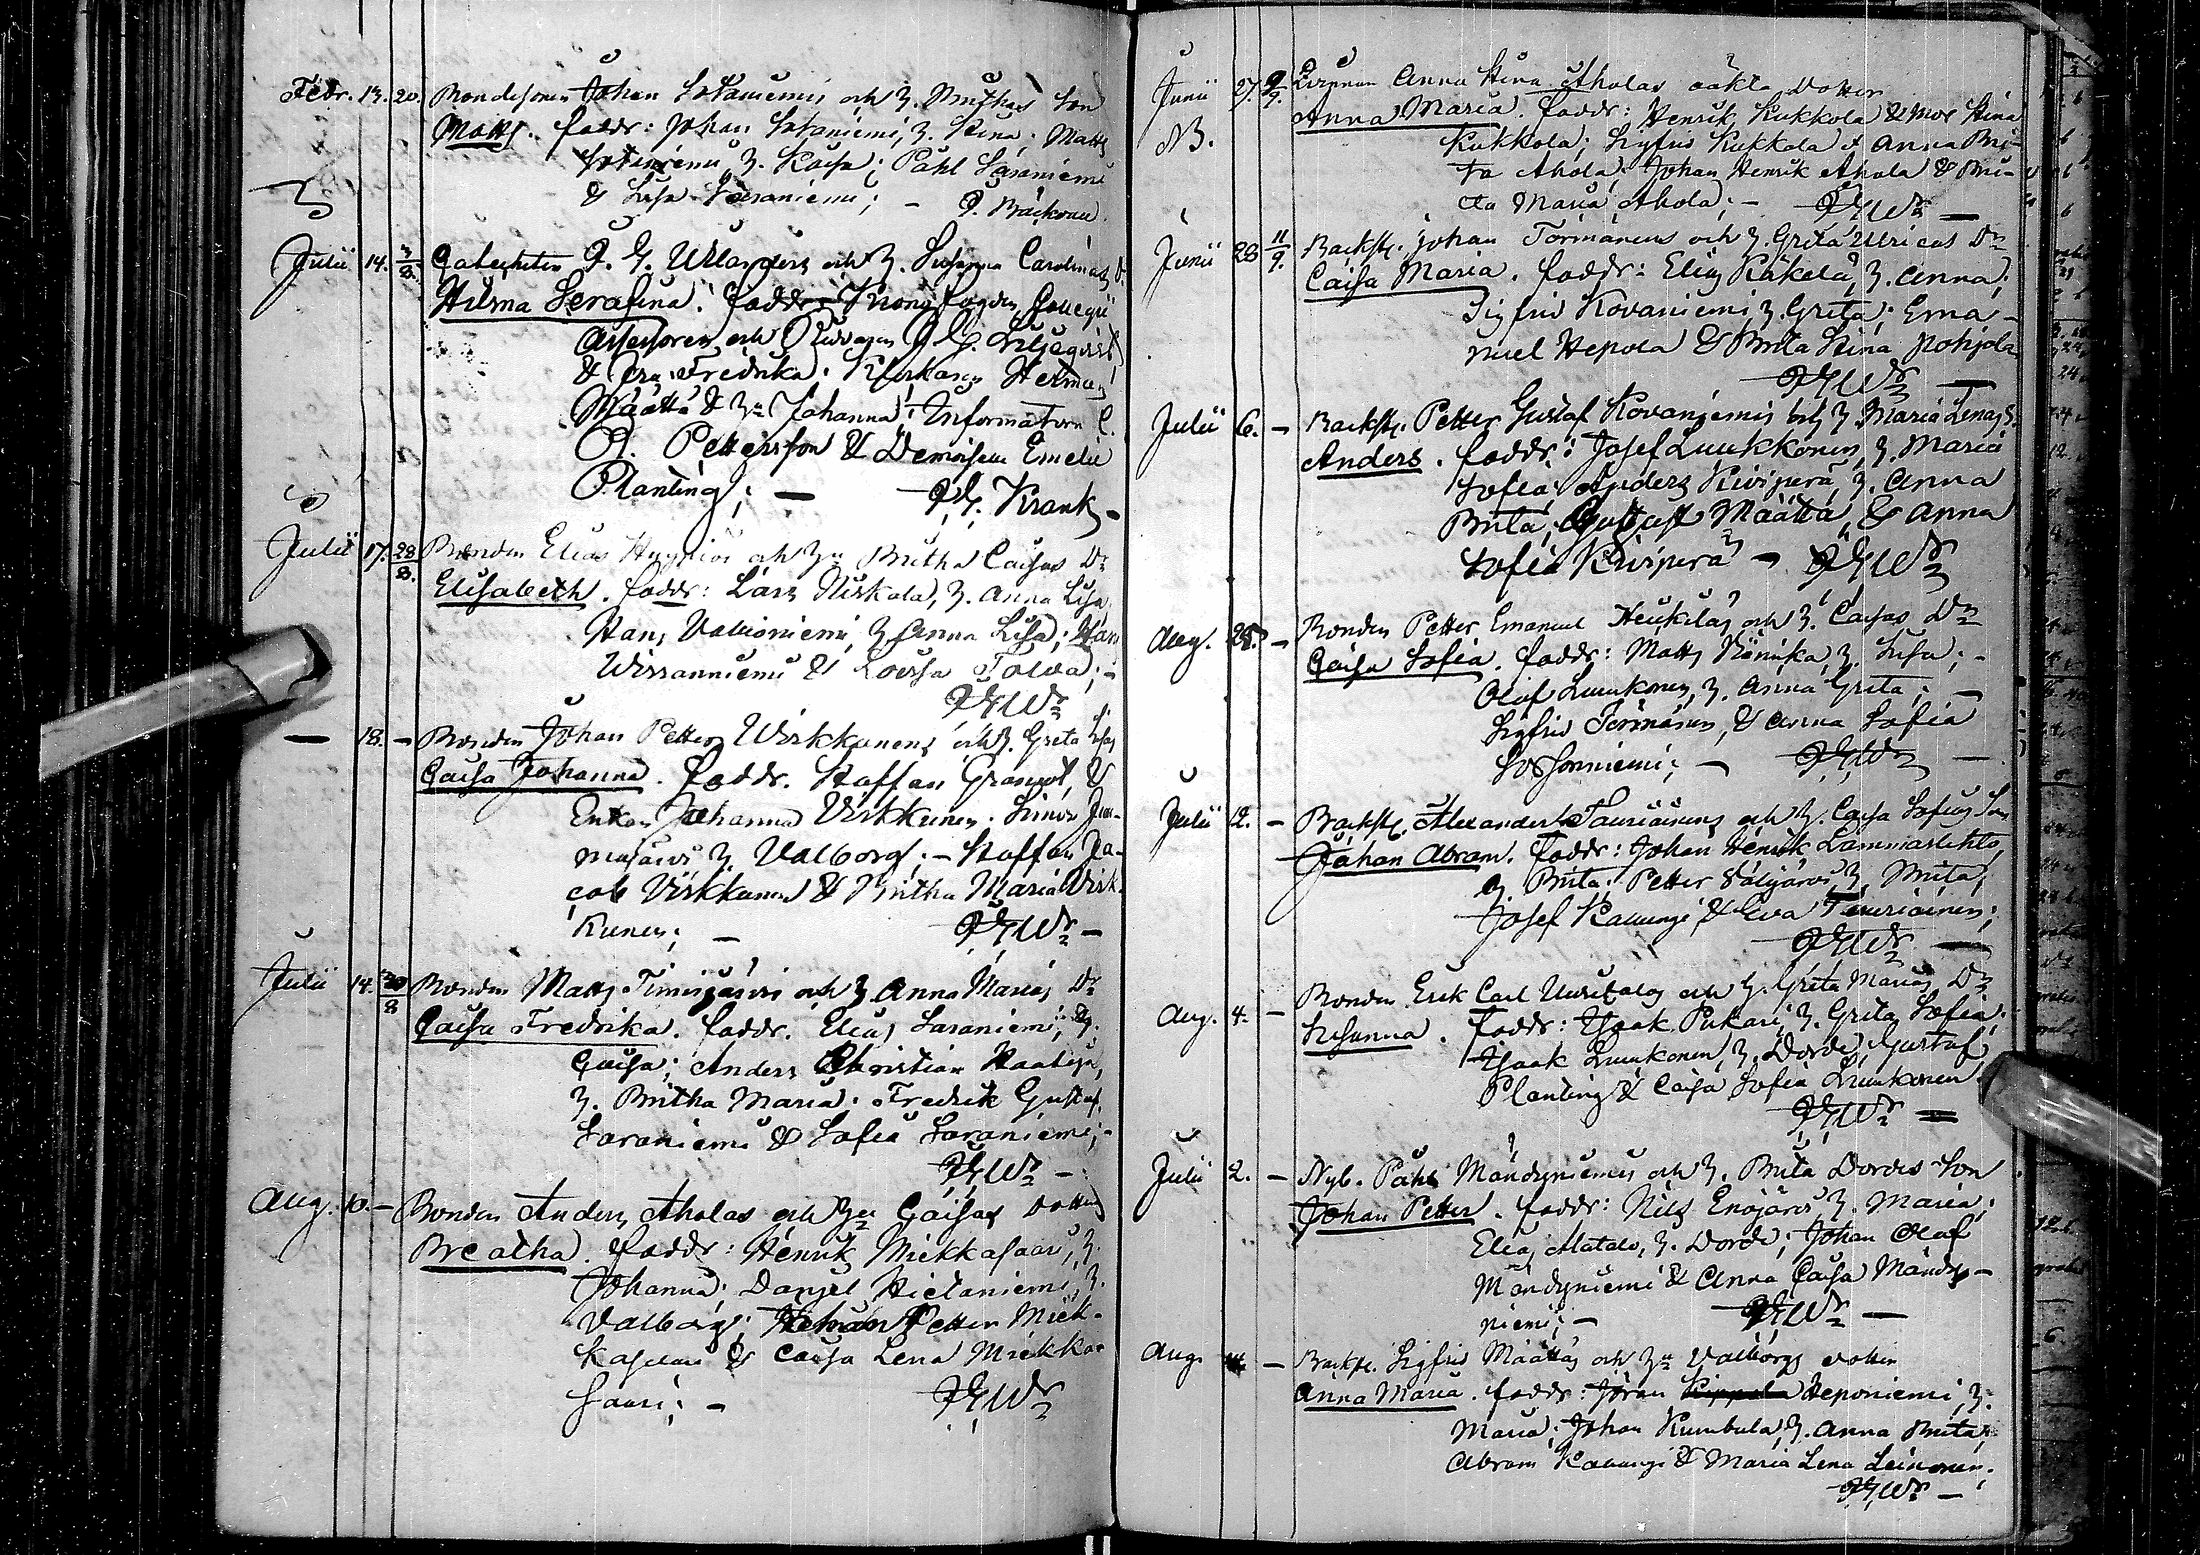 Febr. 13. 20. Bondesonen Johan Sotaniemis och h. Brithas Son
Matts. Faddr: Johan Sotaniemi, h. Stina; Matts
Sotaniemi, h. Kaisa; Påhl Saraniemi
& Lisa Saraniemi; — P. Bäckman
Julii 14. 3/8. Catecheten J. G. Ulanders och h. Susanna Carolinas D.
Hilma Serafina. Faddr: Kronofogden, Collegii
Assessoren och Riddaren J. G. Liljeqvist
& Fru Fredrika. Klockaren Herman
Määttä & h. Johanna; Informatorn C.
A. Petterson & Demoisell Emelie
Planting; — J. G. Krank —
Julii 17. 28/8. Bonden Elias och hu Britha Caisas Dr
Elisabeth. Faddr: Lars Niskala, h. Anna Lisa
Hans Valioniemi, h Anna Lisa; Han
Wirranniemi & Lovisa Tolva; —
JGWr
— 18. — Bonden Johan Petter Wirkkunens och h. Greta Lisas
Caisa Johanna. Faddr. Staffan Granrot, &
Enkan Johanna Virkkunen. Simon Jun-
h. Valborg; — Staffan Ja-
cob Virkkunen & Britha Maria Virk-
kunen; — JGWr —
Julii 14. 20/8 Bonden Matts Timisjärvi och h Anna Marias Dr
Caisa Fredrika. Faddr. Elias Saraniemi, h.
Caisa; Anders Christian Haataja,
h. Britha Maria. Fredrik Gustaf
Saraniemi & Sofia Saraniemi; —
JGWr —
Aug. 10. — Bonden Anders Aholas och hu Caisas dotter
Breatha. Faddr: Henrik Miekkasaari, h.
Johanna; Daniel Hietaniemi, h.
Valborg; Johan Petter Miek-
kasaari & Caisa Lena Miekka-
saari; — JGWr
Junii 27. 9/9. Qvinnan Anna Stina Aholas oäkta Dotter
NB. Anna Maria. Faddr: Henrik Kukkola & Mor Stina
Kukkola; Sigfrid Kukkola & Anna Bri-
ta Ahola; Johan Henrik Ahola & Bri-
ta Maria Ahola; — JGWr —
Junii 28 11/9. Backst. Johan Törmänens och h. Greta Ulricas Dr
Caisa Maria. Faddr: Elias Räkälä, h. Anna;
Sigfrid Kovaniemi h. Greta; Ema-
nuel Hepola & Brita Stina Pohjola
JGWr —
Julii 6. — Backst. Petter Gustaf Kovaniemis och h. Maria Lenas S.
Anders. Faddr: Josef Luukkonen, h. Maria
Sofia; Anders Kiviperä, h. Anna
Brita, Gustaf Määttä, & Anna
Sofia Kiviperä — JGWr
Aug. 28. — Bonden Petter Emanuel Heikiläs och h. Caisas Dr
Caisa Sofia. Faddr: Matts h. Lisa; —
Olof Luukonen, h. Anna Greta; —
Sigfrid Törmänen, & Anna Sofia
— JGWr —
Julii 12. — Backst. Alexander Tauriainens och h. Caisa Sofias Son
Johan Abram. Faddr: Johan Henrik Lammaslehto,
h. Brita; Petter Valijärvi, h. Brita;
Josef Kaunisi & Eva Tauriainen;
JGWr —
Aug. 4. — Bonden Erik Carl Uusitalos och h. Greta Marias Dr
Susanna. Faddr: Isaak Pukari, h. Greta Sofia;
Isaak Luukonen, h. Dorde; Gustaf
Planting & Caisa Sofia Luukonen
JGWr =
Julii 2. — Nyb. Påhl Mändyniemis och h. Brita Dordes Son
Johan Petter. Faddr: Nils Enojärvi, h. Maria;
Elias Alatalo, h. Dorde; Johan Olof
Mändyniemi & Anna Caisa Mändy-
niemi; — JGWr —
Aug. — Backst. Sigfrid Määttäs och hu Valborgs dotter
Anna Maria. Faddr: Jöran Heponiemi, h.
Maria; Johan Kumbula, h. Anna Brita;
Abram Kaunisi & Maria Lena Leinonen.
JGWr —